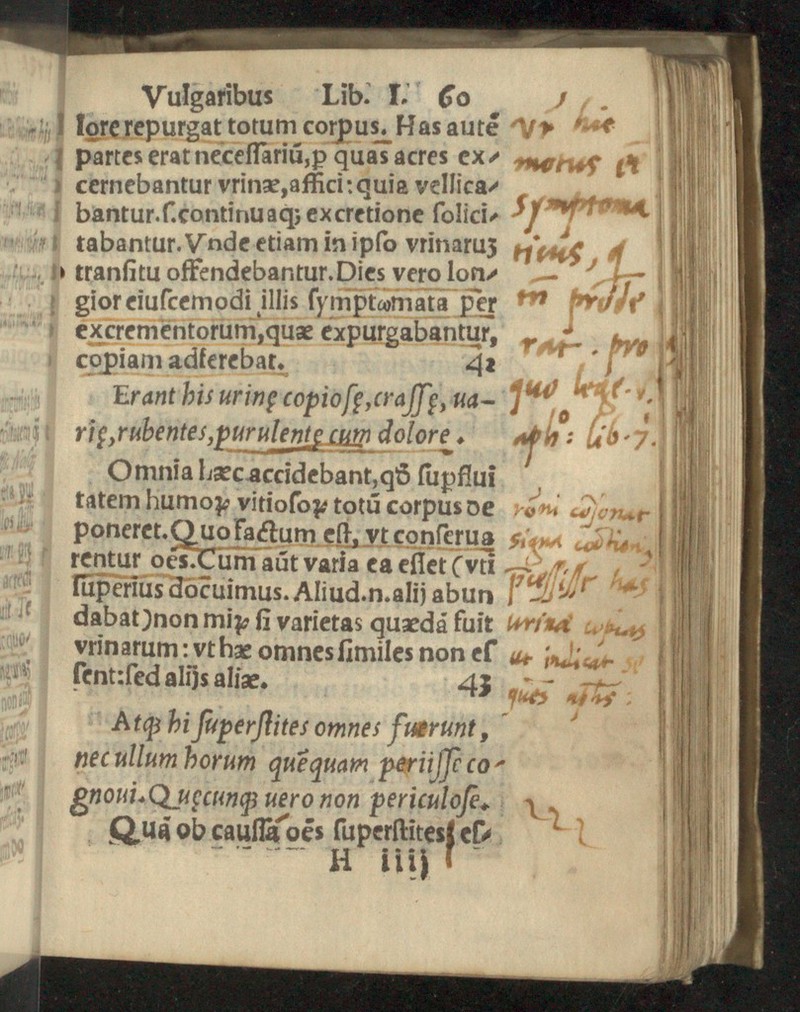 Vulgaribus Lib. I. 60
lore repurgat totum corpus. Has autē
partes erat neceſſariū,p quas acres ex⸗
cernebantur vrinæ,affici: quia vellica⸗
bantur.ſ.continuaq; excretione ſolici⸗
tabantur. Vnde etiam in ipſo vrinaruꝫ
tranſitu offendebantur. Dies vero lon⸗
gior eiuſcemodi illis ſymptωmata per
excrementorum,quæ expurgabantur,
copiam adferebat. 42
Erant his urinę copioſę,craſſę, ua-
rię,rubentes,purulentę cum dolore.
Omnia hæc accidebant,qđ ſupflui
tatem humoꝝ vitioſoꝝ totū corpus de
poneret. Quo factum eſt, vt conſerua
rentur oēs. Cum aūt varia ea eſſet (vti
ſuperius docuimus. Aliud.n.alij abun
dabat) non miꝝ ſi varietas quædā fuit
vrinarum: vt hæ omnes ſimiles non eſ
ſent: ſed alijs aliæ. 43
Atq; hi ſuperſtites omnes fuerunt,
nec ullum horum quēquam periiſſe co-
gnoui. Quęcunq; uero non periculoſe.
Quā ob cauſſā oēs ſuperſtites eſ⸗
H iiij
hic
motus et
Symptoma
ticus,
pro
quo lege
aph: lib. 7.
signa
has
urina copias
ut indicat